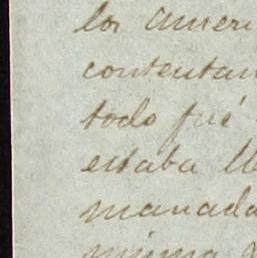 los ameri
contentan
todo fué
estaba ll
manada
misma